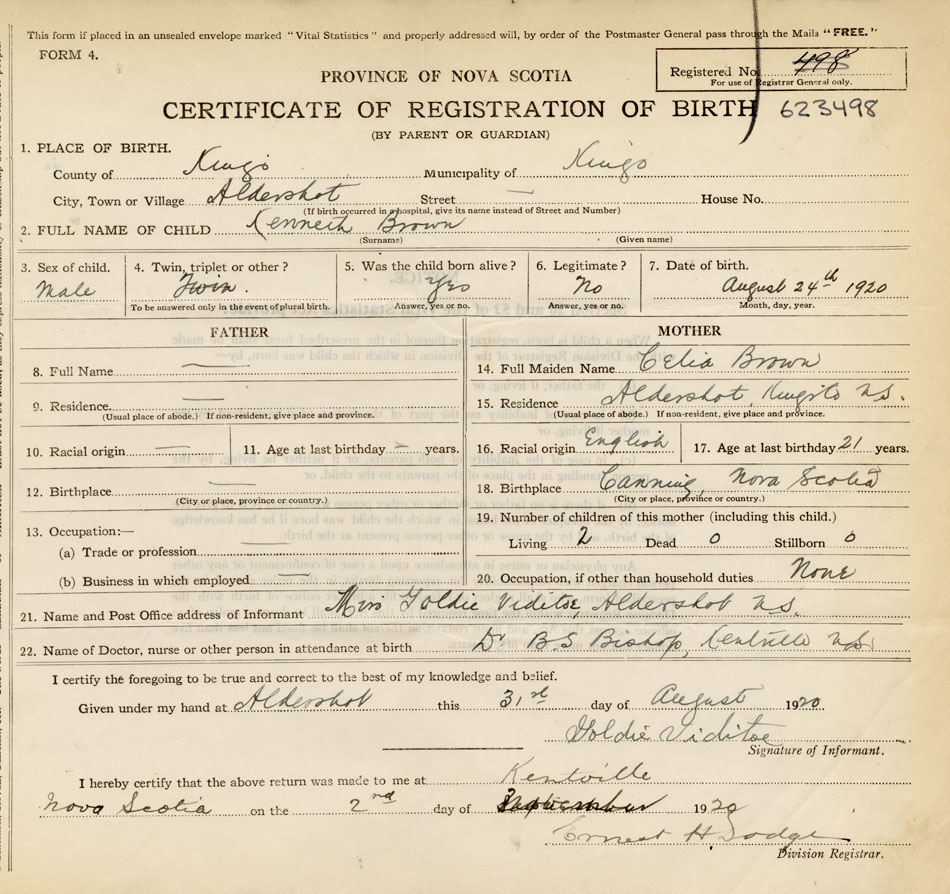 This form if placed in an unsealed envelope marked "Vital Statistics" and properly addressed will, by order of the Postmaster General pass through the Mails "FREE."
FORM 4.
Registered No. 498
For use of Registrar General only.
PROVINCE OF NOVA SCOTIA
CERTIFICATE OF REGISTRATION OF BIRTH 623498
(BY PARENT OR GUARDIAN)
1. PLACE OF BIRTH.
County of Kings Municipality of Kings
City, Town or Village Aldershot Street — House No.
(If birth occurred in a hospital, give its name instead of Street and Number)
2. FULL NAME OF CHILD Kenneth Brown
(Surname) (Given name)
3. Sex of child. 4. Twin, triplet or other? 5. Was the child born alive? 6. Legitimate? 7. Date of birth.
Male Twin. Yes No August 24th 1920
To be answered only in the event of plural birth. Answer, yes or no. Answer, yes or no. Month, day, year.
FATHER
8. Full Name —
9. Residence. —
(Usual place of abode.) If non-resident, give place and province.
10. Racial origin — 11. Age at last birthday — years.
12. Birthplace —
(City or place, province or country.)
13. Occupation:—
(a) Trade or profession —
(b) Business in which employed —
MOTHER
14. Full Maiden Name Celia Brown
15. Residence Aldershot, Kings Co N.S.
(Usual place of abode.) If non-resident, give place and province.
16. Racial origin English 17. Age at last birthday 21 years.
18. Birthplace Canning, Nova Scotia
(City or place, province or country.)
19. Number of children of this mother (including this child.)
Living 2 Dead 0 Stillborn 0
20. Occupation, if other than household duties None
21. Name and Post Office address of Informant Mrs Goldie Viditoe, Aldershot N.S.
22. Name of Doctor, nurse or other person in attendance at birth Dr B S Bishop, Kentville N.S.
I certify the foregoing to be true and correct to the best of my knowledge and belief.
Given under my hand at Aldershot this 31rst day of August 1920
Goldie Viditoe
Signature of Informant.
I hereby certify that the above return was made to me at Kentville
Nova Scotia on the 2nd day of September 1920
Ernest H Dodge
Division Registrar.